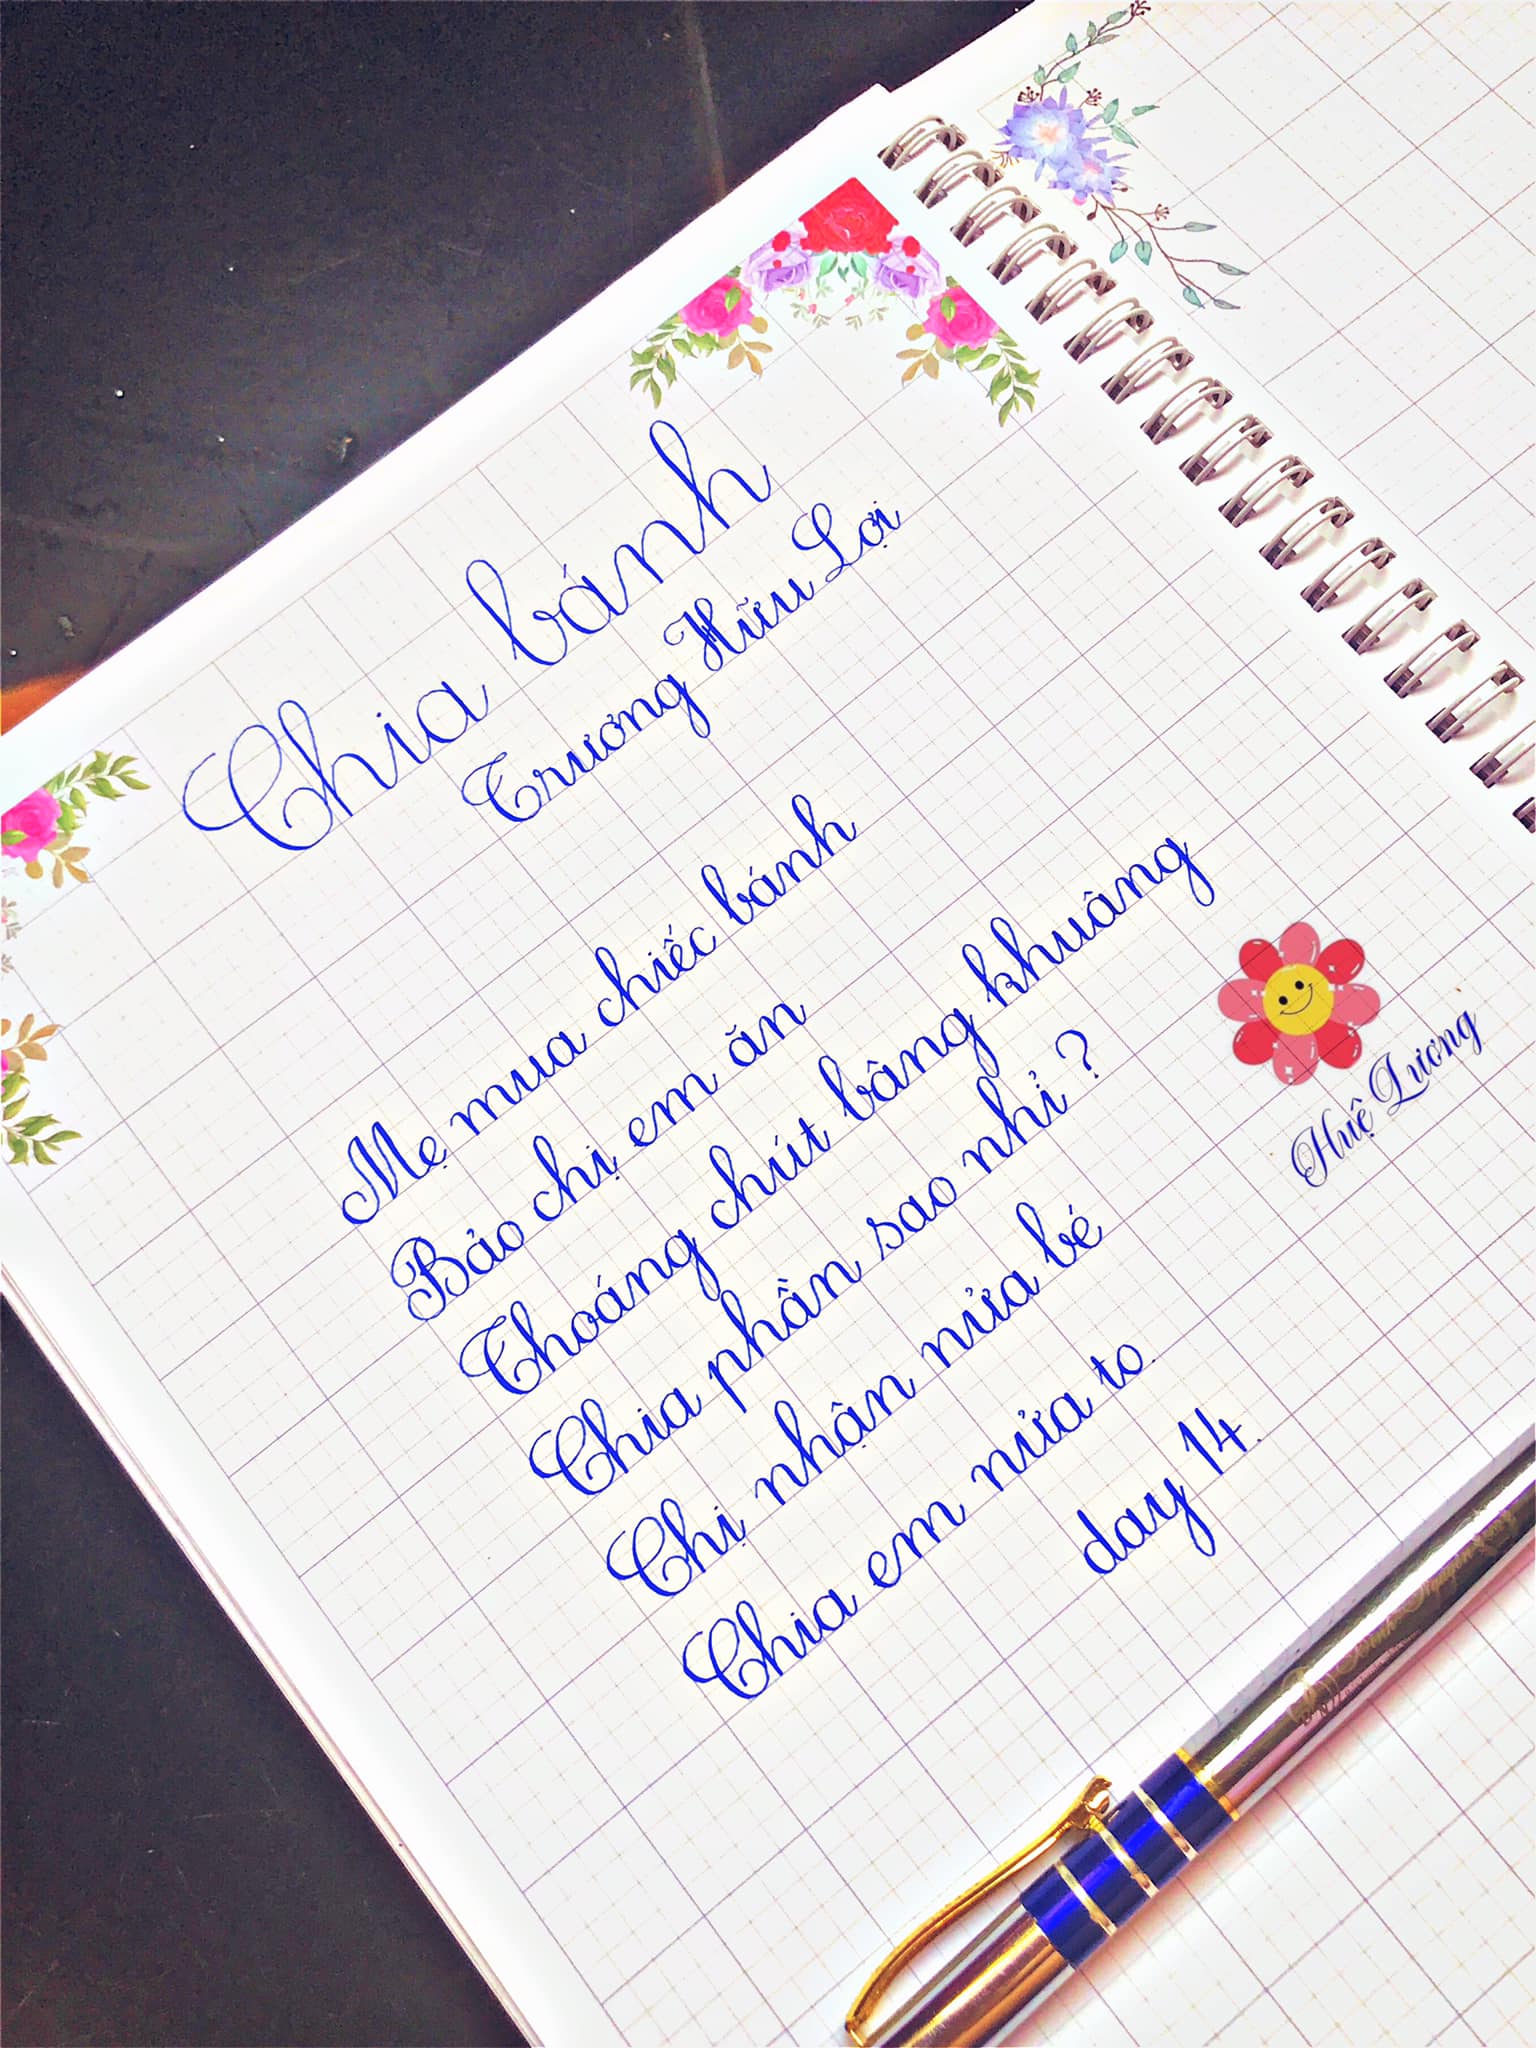 Chia bánh
Trương Hữu Lợi
Mẹ mua chiếc bánh
Bảo chị em ăn
Thoáng chút bâng khuâng
Chia phần sao nhỉ ?
Chị nhận nửa bé
Chia em nửa to.
day 14.
Huệ Lương